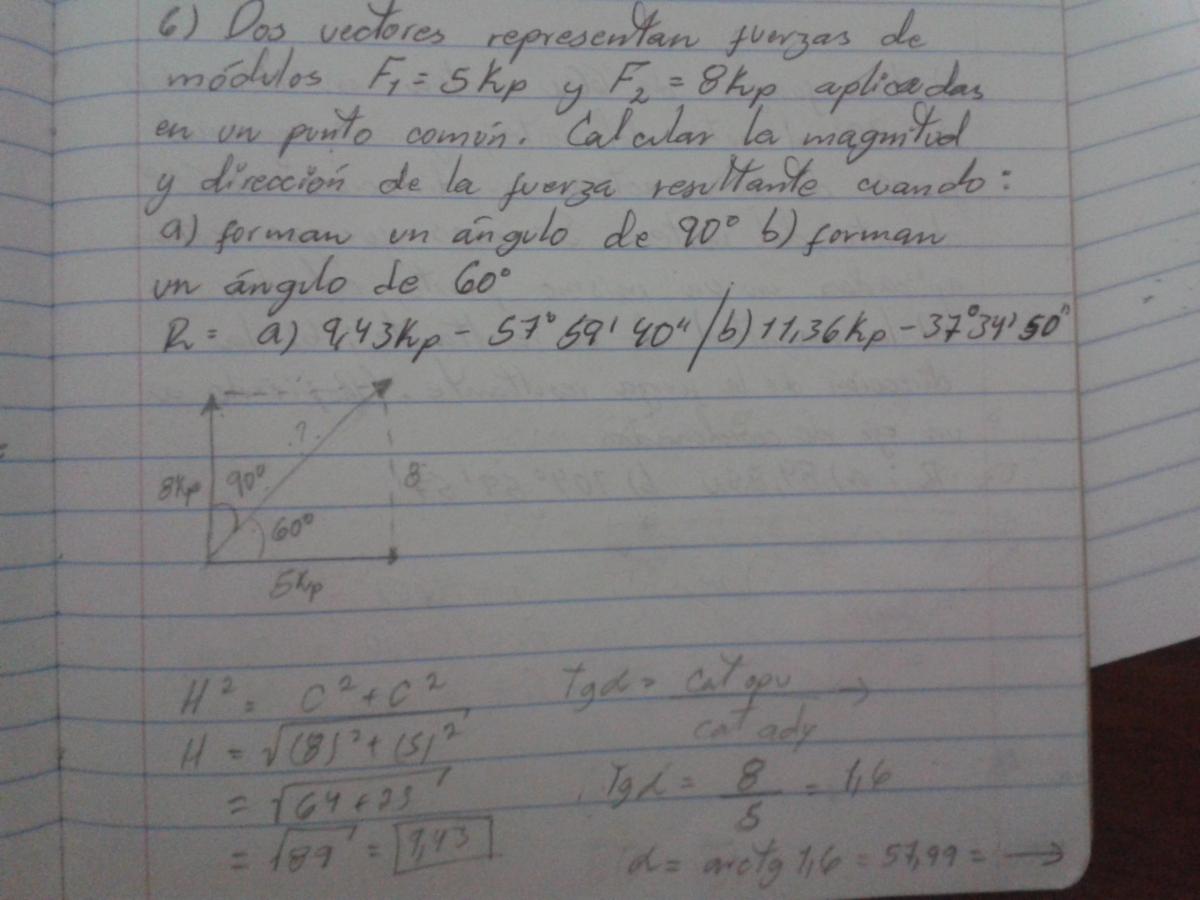 6) Dos vectores representan fuerzas de
módulos F₁ = 5Kp y F₂ = 8Kp aplicadas
en un punto común. Calcular la magnitud
y dirección de la fuerza resultante cuando:
a) forman un ángulo de 90° b) forman
un ángulo de 60°
R = a) 9,43Kp - 57° 59' 40" / b) 11,36Kp - 37° 34' 50"
?
8Kp 90° 8
60°
5Kp
H² = C² + C²
H = √(8)² + (5)²
= √64 + 25
= √89 = 9,43
Tgα = cat opu →
cat ady
Tgα = 8 = 1,6
5
α = arctg 1,6 = 57,99 = →